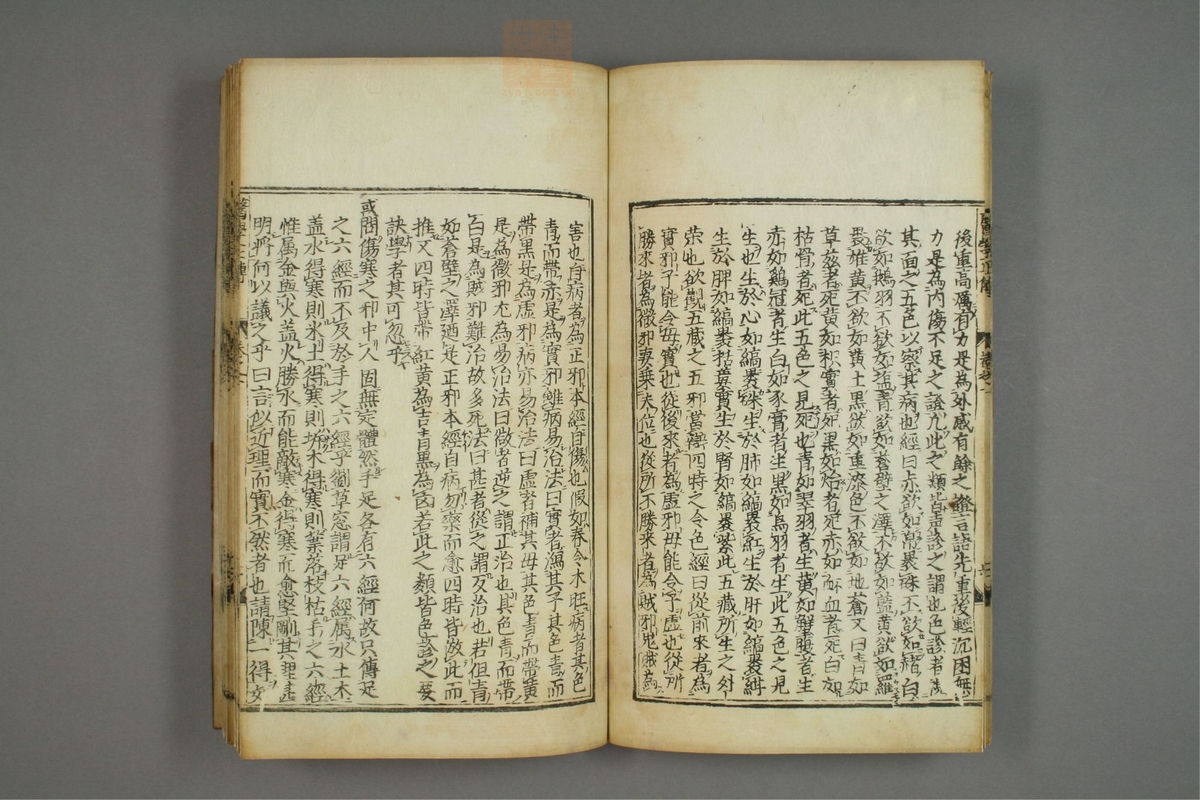 後重高厲有力是為外感有餘之證言語先重後輕沉困無
力是為内傷不足之證凡此之類皆聲診之謂也色診者
其面之五色以察其病也經曰赤欲如帛裹硃不欲如赭白
欲如鵝羽不欲如鹽青欲如蒼壁之澤不欲如藍黄欲如羅
裹雄黄不欲如黄土黒欲如重漆色不欲如地蒼又曰青如
草玆者死黄如枳實者死黒如炲者死赤如衃血者死白如
枯骨者死此五色之見死也青如翠羽者生黄如蟹腹者生
赤如鷄冠者生白如豕膏者生黒如烏羽者生此五色之見
生也生於心如縞裹硃生於肺如縞裹紅生於肝如縞裹紺
生於脾如縞裹栝蔞實生於腎如縞裹紫此五藏所生之外
荣也欲觀五藏之五邪當辯四時之令色經曰從前來者為
實邪子能令母實也從後來者為虚邪母能令子虚也從所
勝來者為微邪妻乗夫位也從所不勝來者為賊邪鬼賊為
害也自病者為正邪本經自傷也假如春令木旺病者其色
青而帶赤是為實邪雖病易治法曰實者瀉其子其色青而
帶黒是為虚邪病亦易治法曰虚者補其母其色青而帶黄
是為微邪尤為易治法曰微者逆之謂正治也其色青而帶
白是為賊邪難治故多死法曰甚者從之謂反治也若但青
如蒼壁之澤廼是正邪本經自病勿藥而愈四時皆倣此而
推又四時皆帶紅黄為吉青黒為凶若此之類皆色診之要
訣學者其可忽乎
或問傷寒之邪中人固無定體然手足各有六經何故只傳足
之六經而不及於手之六經乎劉草窓謂足六經属水土木
盖水得寒則氷土得寒則坼木得寒則葉落枝枯手之六經
惟属金與火盖火勝水而能敵寒金得寒而愈堅剛其理甚
明將何以議之乎曰言似近理而實不然者也請陳一得